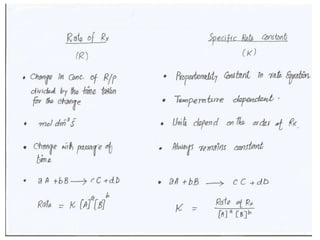 Rate of Rx
(R)
• Change in Conc. of R/p
divided by the time taken
for the change
• mol dm⁻³ s⁻
• Change with passage of
time
• aA + bB → cC + dD
Rate = K [A]ᵃ [B]ᵇ
Specific Rate Constant
(K)
• Proportionality Constant in rate Equation
• Temperature dependant.
• Units depend on the order of Rx.
• Always remains constant
• aA + bB → cC + dD
K = Rate of Rx
[A]ᵃ [B]ᵇ